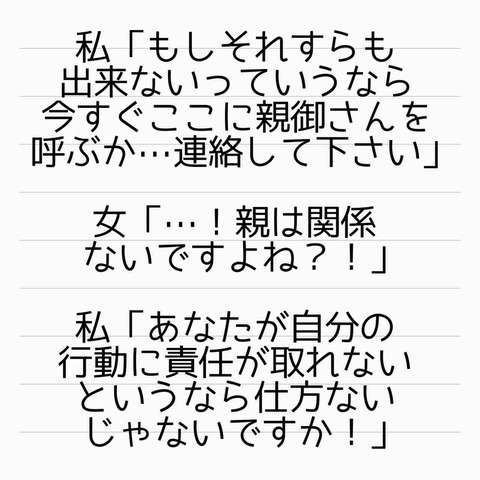 私「もしそれすらも
出来ないっていうなら
今すぐここに親御さんを
呼ぶか…連絡して下さい」
女「…！親は関係
ないですよね？！」
私「あなたが自分の
行動に責任が取れない
というなら仕方ない
じゃないですか！」